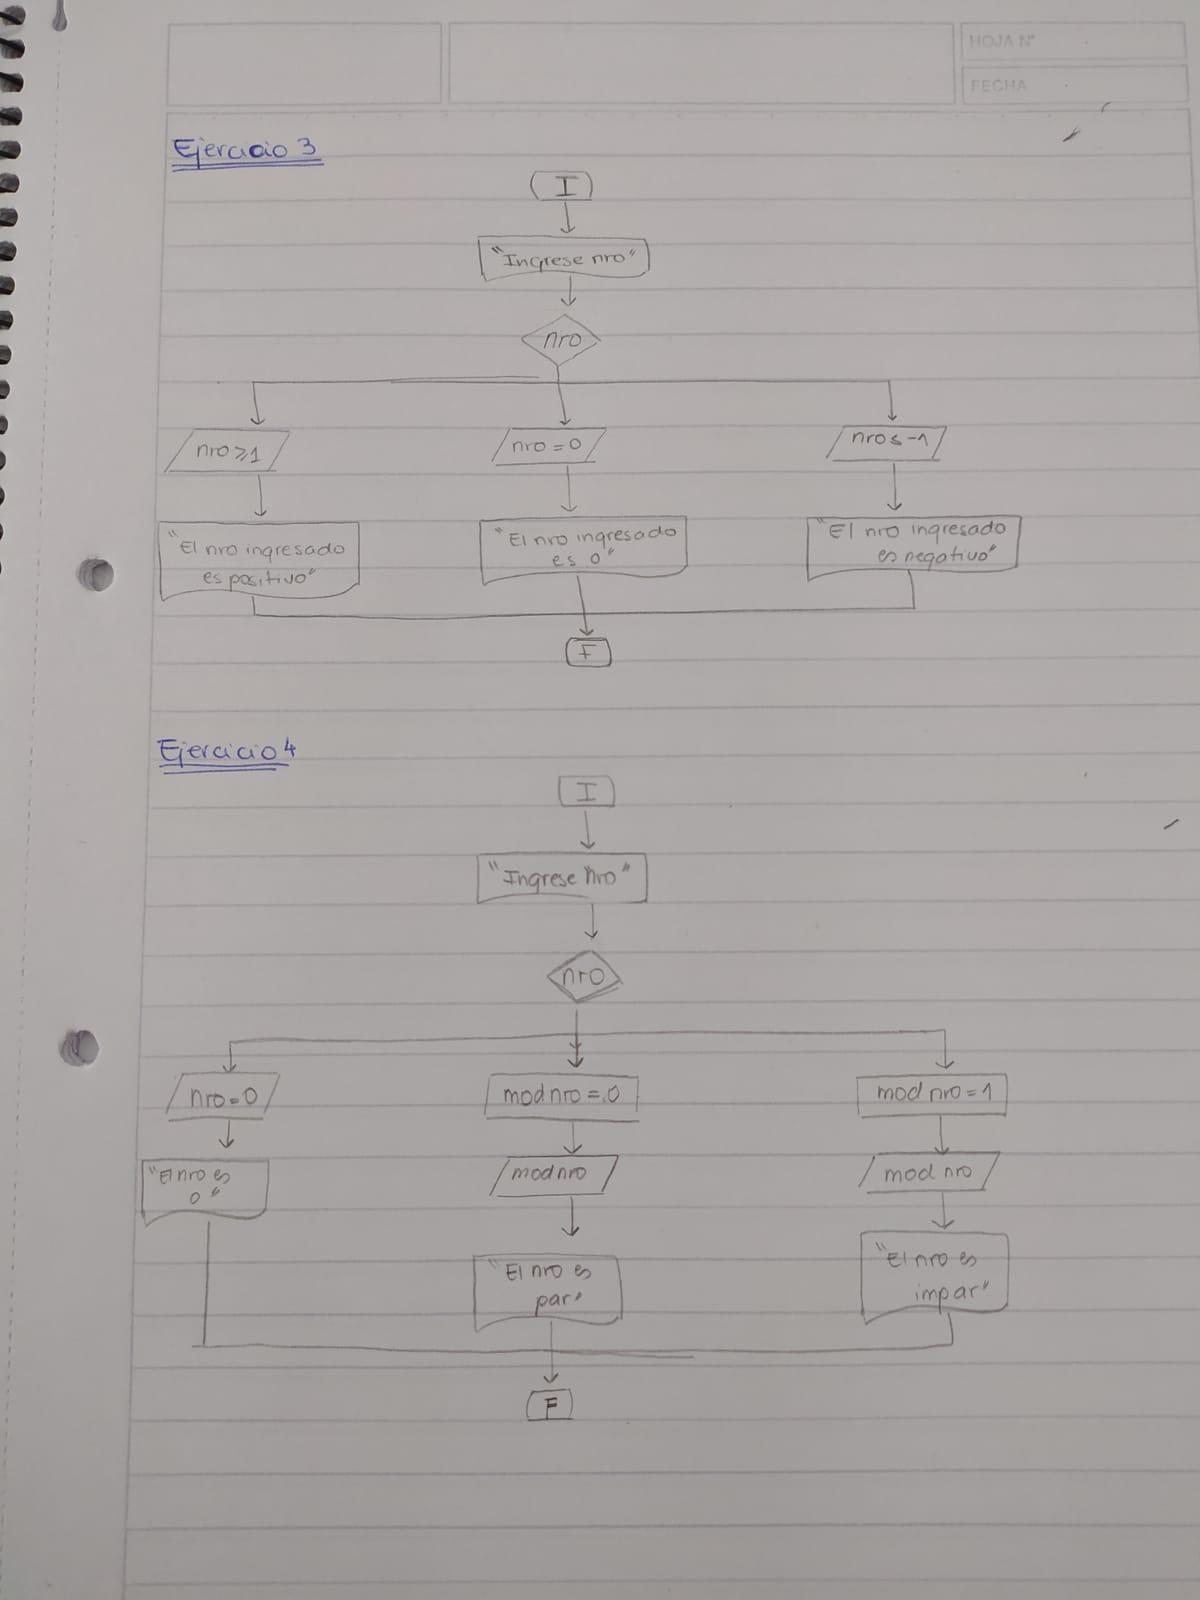 HOJA N°
FECHA
Ejercicio 3
I
"Ingrese nro"
nro
nro ≥ 1
nro = 0
nro ≤ -1
"El nro ingresado
es positivo"
"El nro ingresado
es 0"
"El nro ingresado
es negativo"
F
Ejercicio 4
I
"Ingrese nro"
nro
nro = 0
mod nro = 0
mod nro = 1
"El nro es
0"
mod nro
mod nro
"El nro es
par"
"El nro es
impar"
F